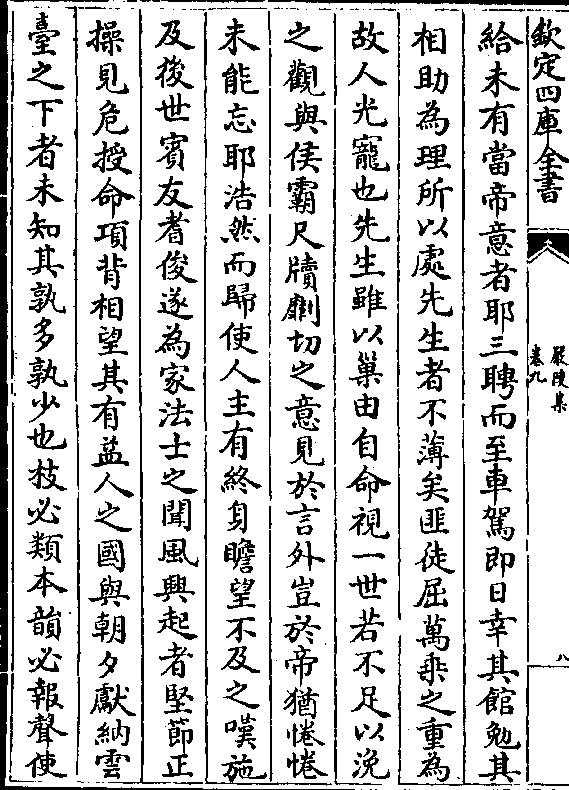 欽定四庫全書
嚴陵集
卷九
八
給未有當帝意者耶三聘而至車駕即日幸其館勉其
相助為理所以處先生者不薄矣匪徒屈萬乘之重為
故人光寵也先生雖以巢由自命視一世若不足以浼
之觀與侯霸尺牘劘切之意見於言外豈於帝猶惓惓
未能忘耶浩然而歸使人主有終身瞻望不及之嘆施
及後世賓友耆俊遂為家法士之聞風興起者堅節正
操見危授命項背相望其有益人之國與朝夕獻納雲
臺之下者未知其孰多孰少也枝必類本韻必報聲使